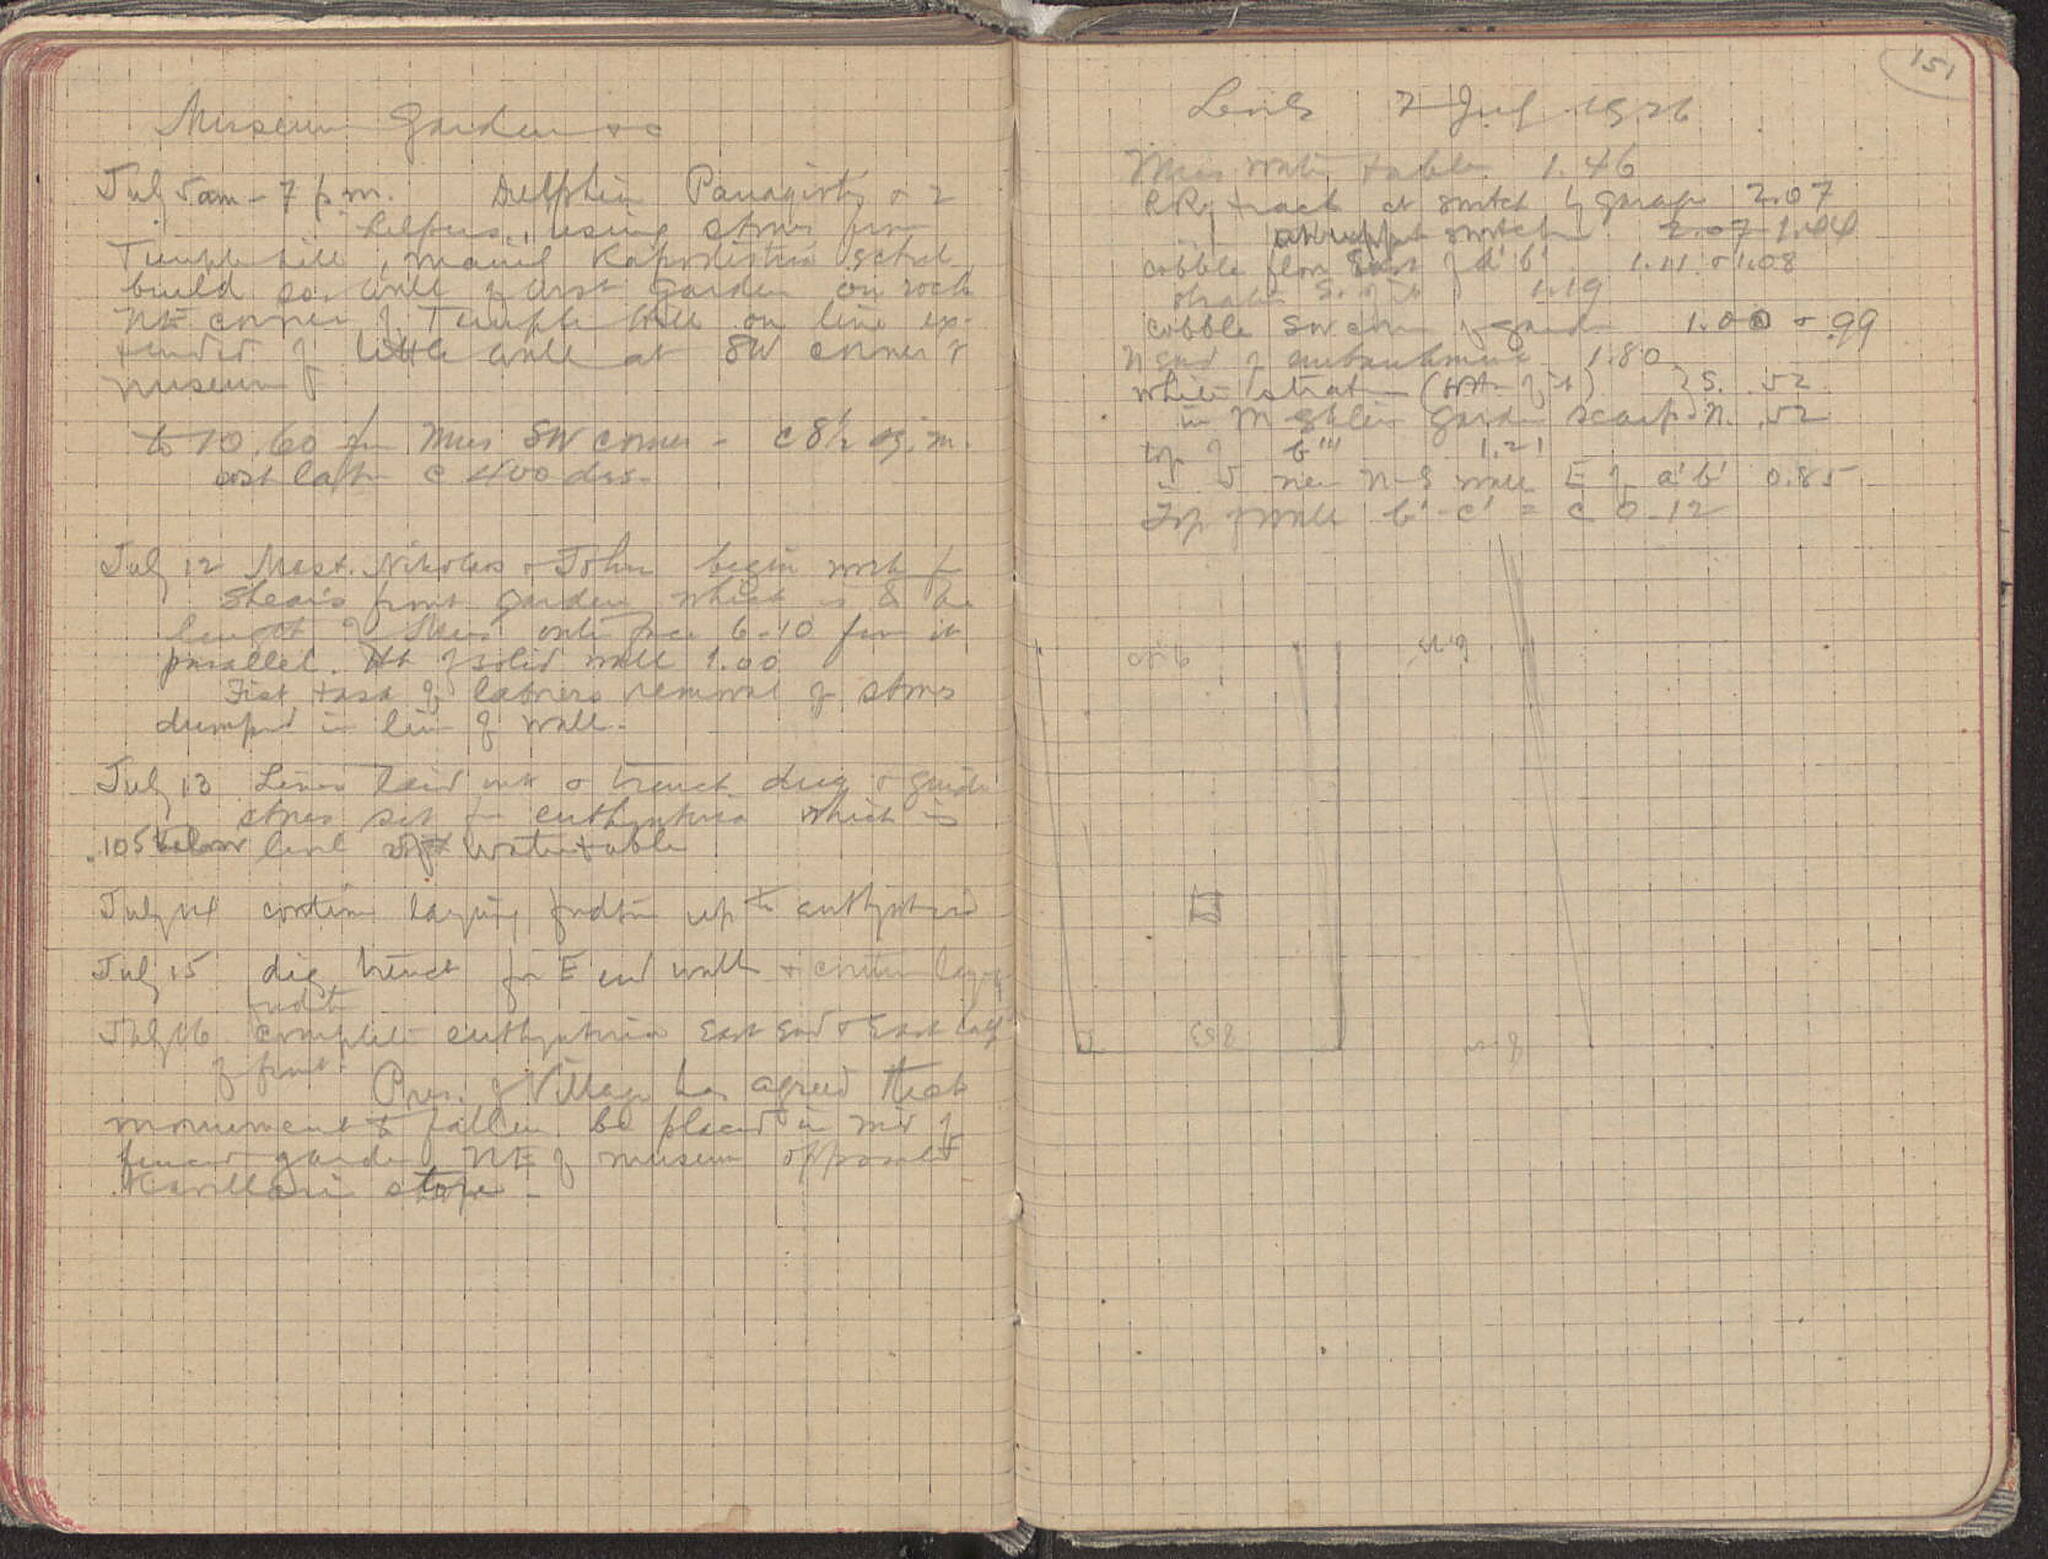 Museum Garden &c
July 5am - 7 pm. Delphin Panagiotis & 2
helpers, using stones from
Temple hill, Kapodistria school
build So. wall of first garden on rock
NE corner of Temple hill on line ex-
tended of little wall at SW corner of
museum
to 10.60 from Mus SW corner - c 8½ sq. m.
cost later c 400 drs.
July 12 Mast. Nikolaos & John begin work for
Shear's front garden which is & the
length of Mus. front face 6.10 from it
parallel. Ht of solid wall 1.00
First task of laborers removal of stones
dumped in line of wall.
July 13 Lines laid out & trench dug & guide
stones set for euthynteria which is
.105 below level of water table
July 14 continue laying fndtn up to euthynteria
July 15 dig trench for E end wall & continue laying
fndtn
July 16 complete euthynteria East End & East half
of front.
Pres. of Village has agreed that
monument to fallen be placed in mid of
fenced garden NE of museum opposite
store -
151
Levels 7 July 1926
Mus water table 1.46
RRy track at switch by garage 2.07
at upper switch 2.07 1.44
cobble floor East of a' b' 1.11 & 1.08
strata S. of it 1.19
cobble SW corner of garden 1.00 & .99
N end of embankment 1.80
white stratum (Ht of it) } S. .52
in garden scarp N. .52
top of b''' 1.21
" " new N-S wall E of a' b' 0.85
Top of wall b'-c' = c 0.12